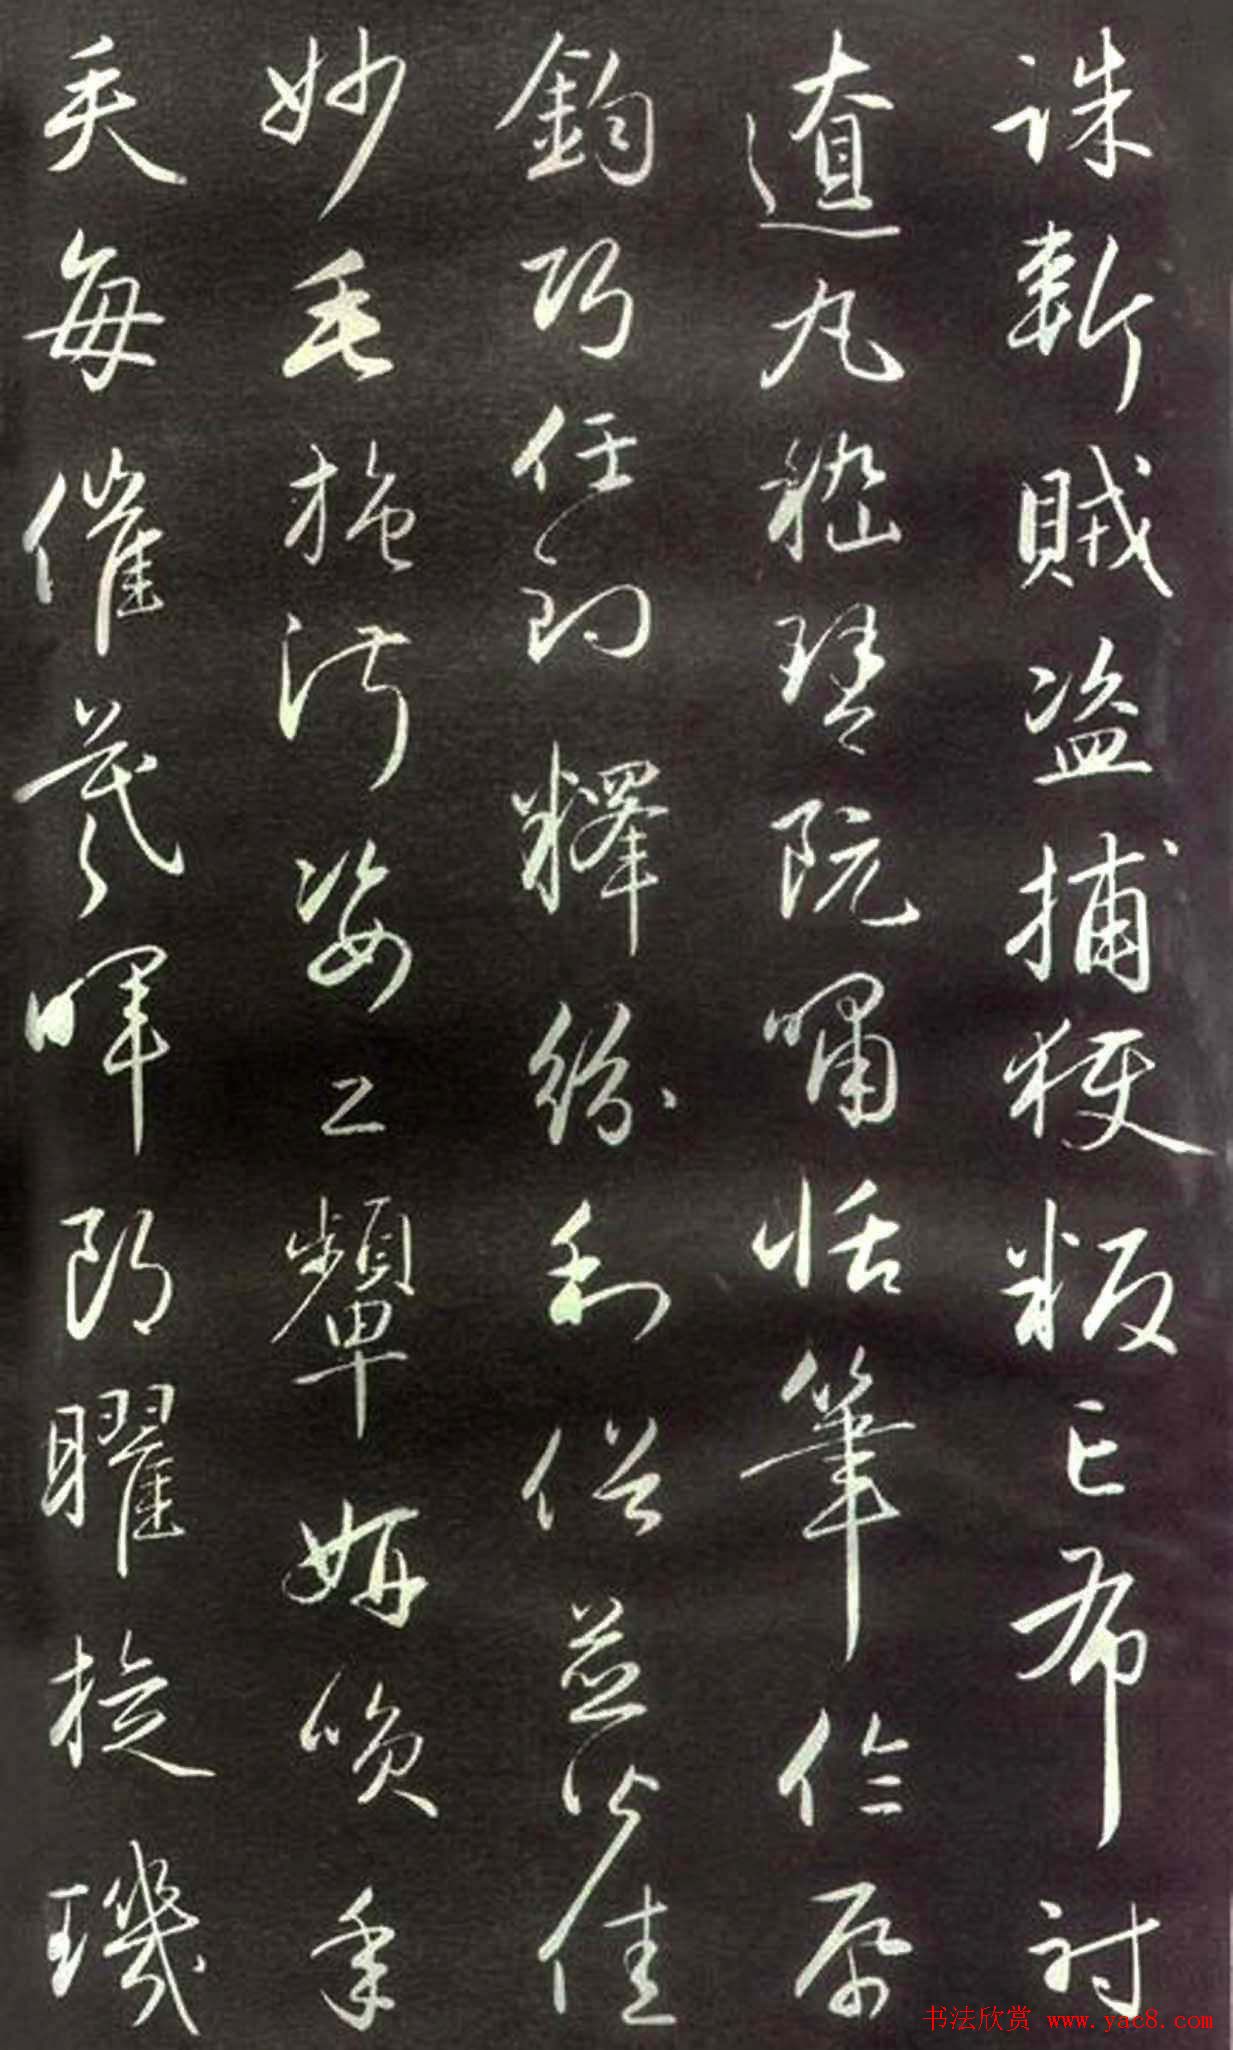 誅斬賊盗捕獲叛亡布射
遼丸嵇琴阮嘯恬筆倫紙
鈞巧任釣釋紛利俗並皆佳
妙毛施淑姿工顰妍笑年
矢每催羲暉朗曜旋璣
书法欣赏 www.yac8.com